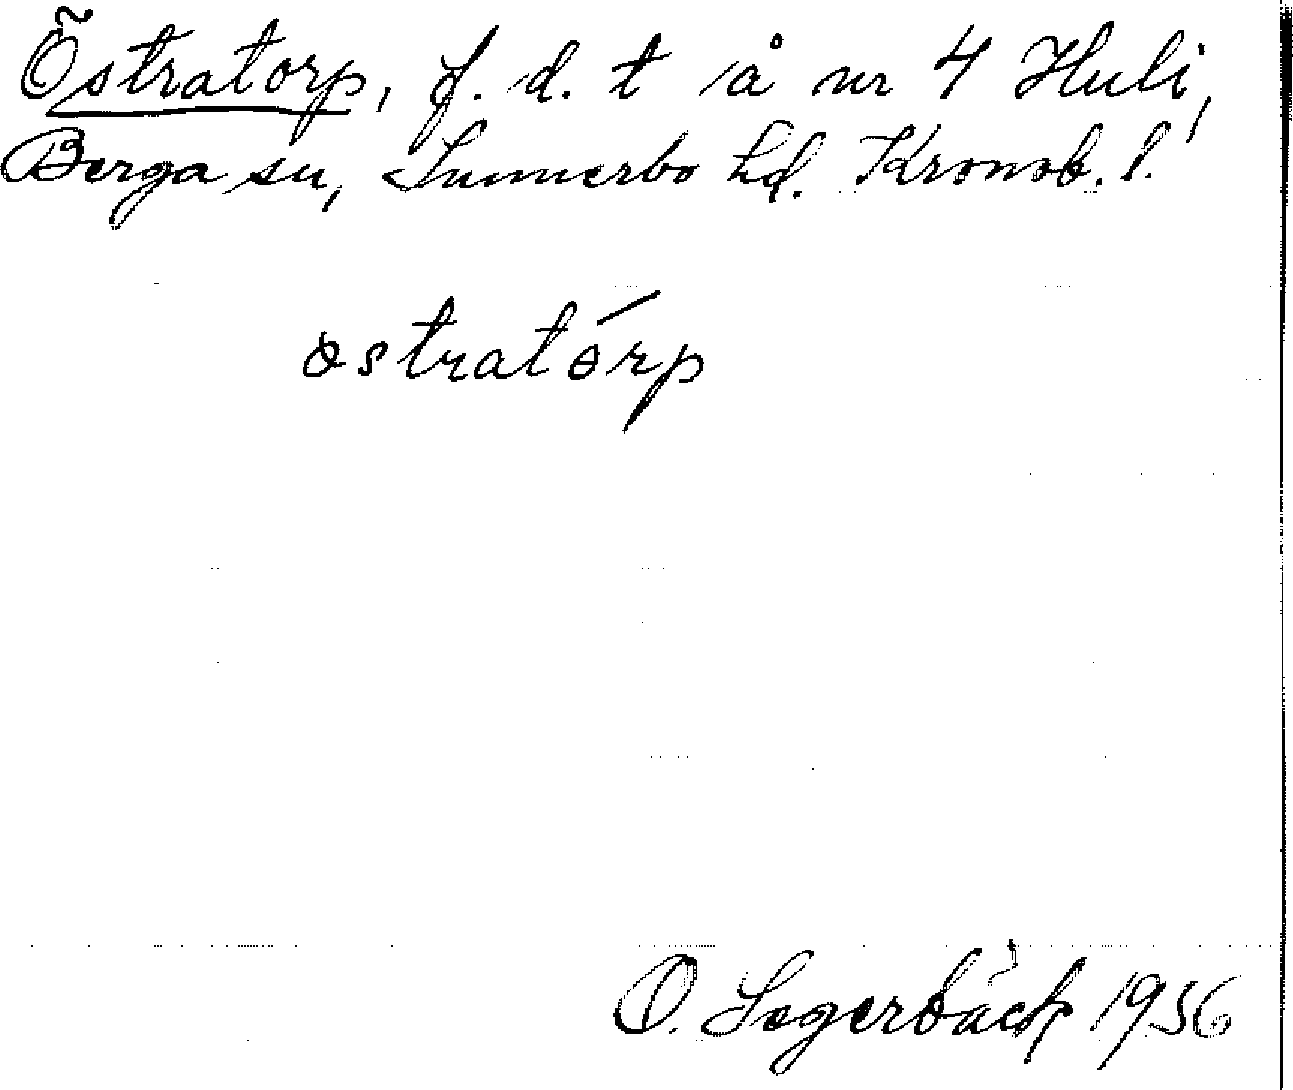 Östratorp, f. d. t å nr 4 Huli,
Berga sn, Sunnerbo hd. Kronob. l.
östratórp
O. Segerbäck 1936